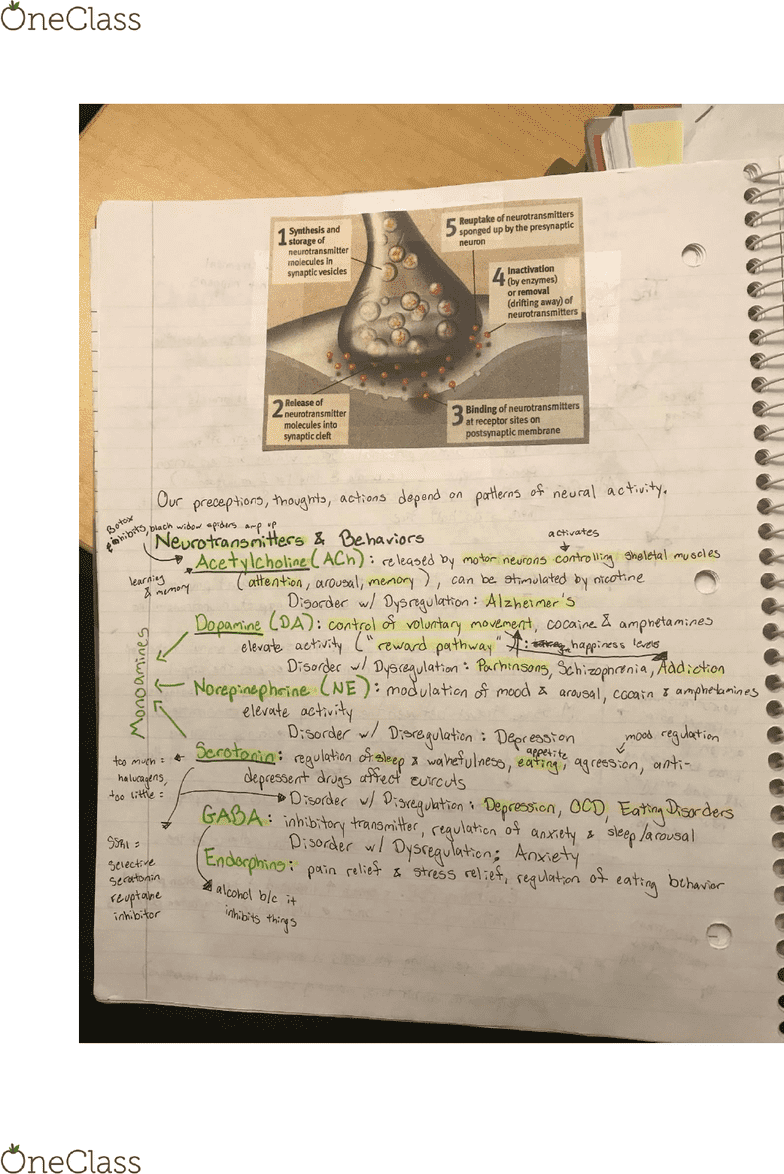 OneClass
1 Synthesis and
storage of
neurotransmitter
molecules in
synaptic vesicles
5 Reuptake of neurotransmitters
sponged up by the presynaptic
neuron
4 Inactivation
(by enzymes)
or removal
(drifting away) of
neurotransmitters
2 Release of
neurotransmitter
molecules into
synaptic cleft
3 Binding of neurotransmitters
at receptor sites on
postsynaptic membrane
Our preceptions, thoughts, actions depend on patterns of neural activity.
Botox
inhibits, black widow spiders amp up
Neurotransmitters & Behaviors
activates
Acetylcholine (ACh): released by motor neurons controlling skeletal muscles
learning
& memory
(attention, arousal, memory), can be stimulated by nicotine
Disorder w/ Dysregulation: Alzheimer's
Monoamines
Dopamine (DA): control of voluntary movement, cocaine & amphetamines
elevate activity ("reward pathway") : happiness levels
Disorder w/ Dysregulation: Parkinsons, Schizophrenia, Addiction
Norepinephrine (NE): modulation of mood & arousal, cocain & amphetamines
elevate activity
Disorder w/ Disregulation: Depression
mood regulation
appetite
Serotonin: regulation of sleep & wakefulness, eating, agression, anti-
depressent drugs affect cuircuts
too much =
halucagens,
too little =
Disorder w/ Disregulation: Depression, OCD, Eating Disorders
GABA: inhibitory transmitter, regulation of anxiety & sleep/arousal
Disorder w/ Dysregulation: Anxiety
SSRI =
selective
seratonin
reuptake
inhibitor
Endorphins: pain relief & stress relief, regulation of eating behavior
alcohol b/c it
inhibits things
OneClass